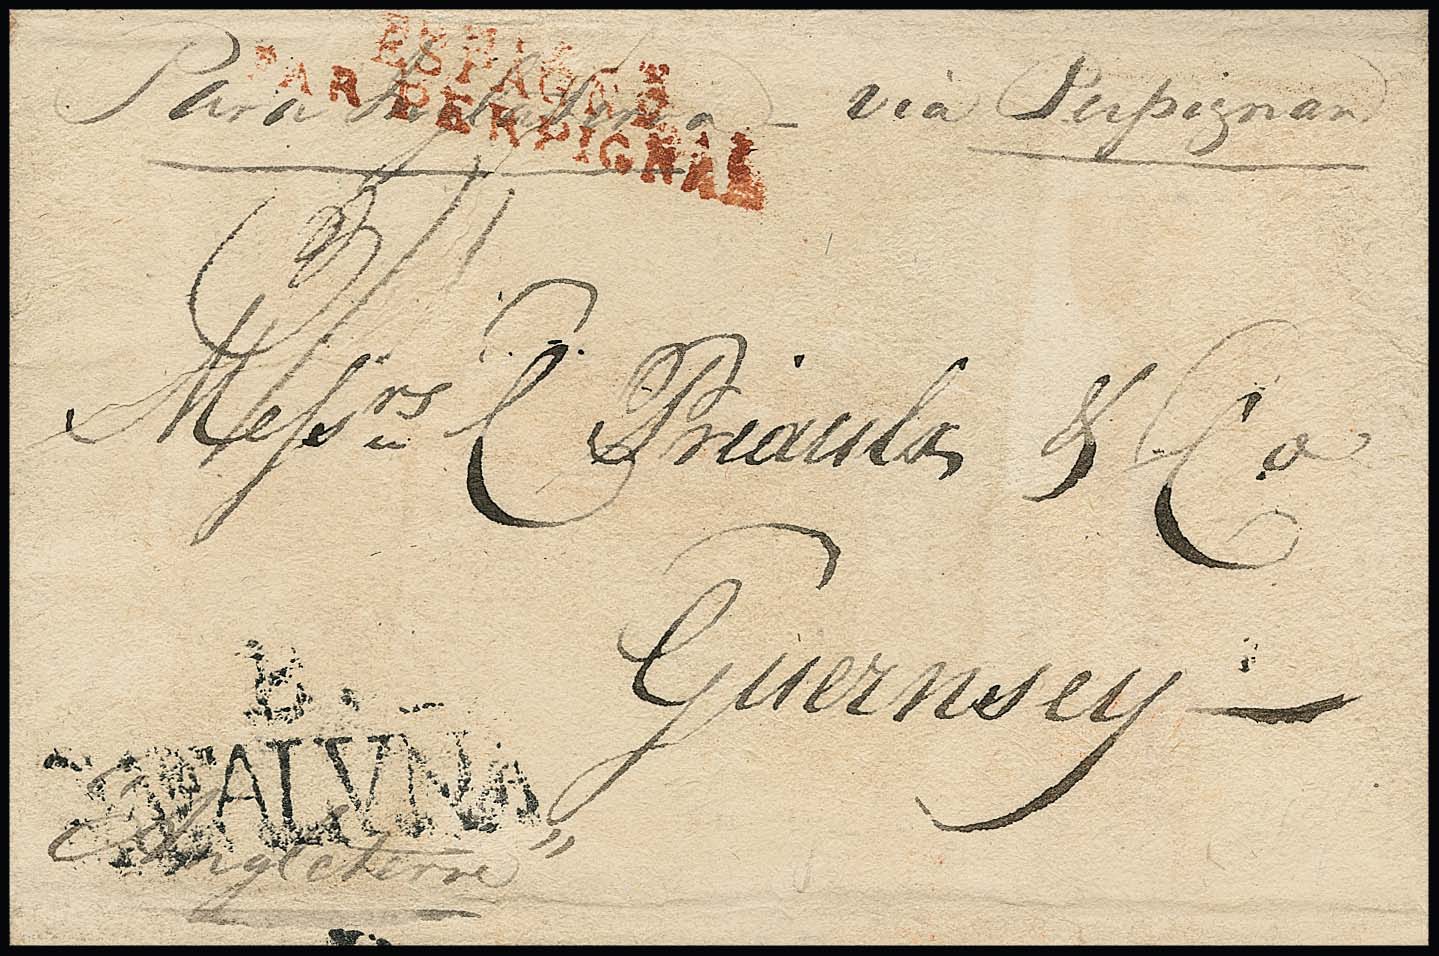 ESPAGNE
PAR PERPIGNAN
Para Inglaterra - via Perpignan
Messrs C Priaulx & Co
Guernsey
B.
CATALUÑA
Angleterre